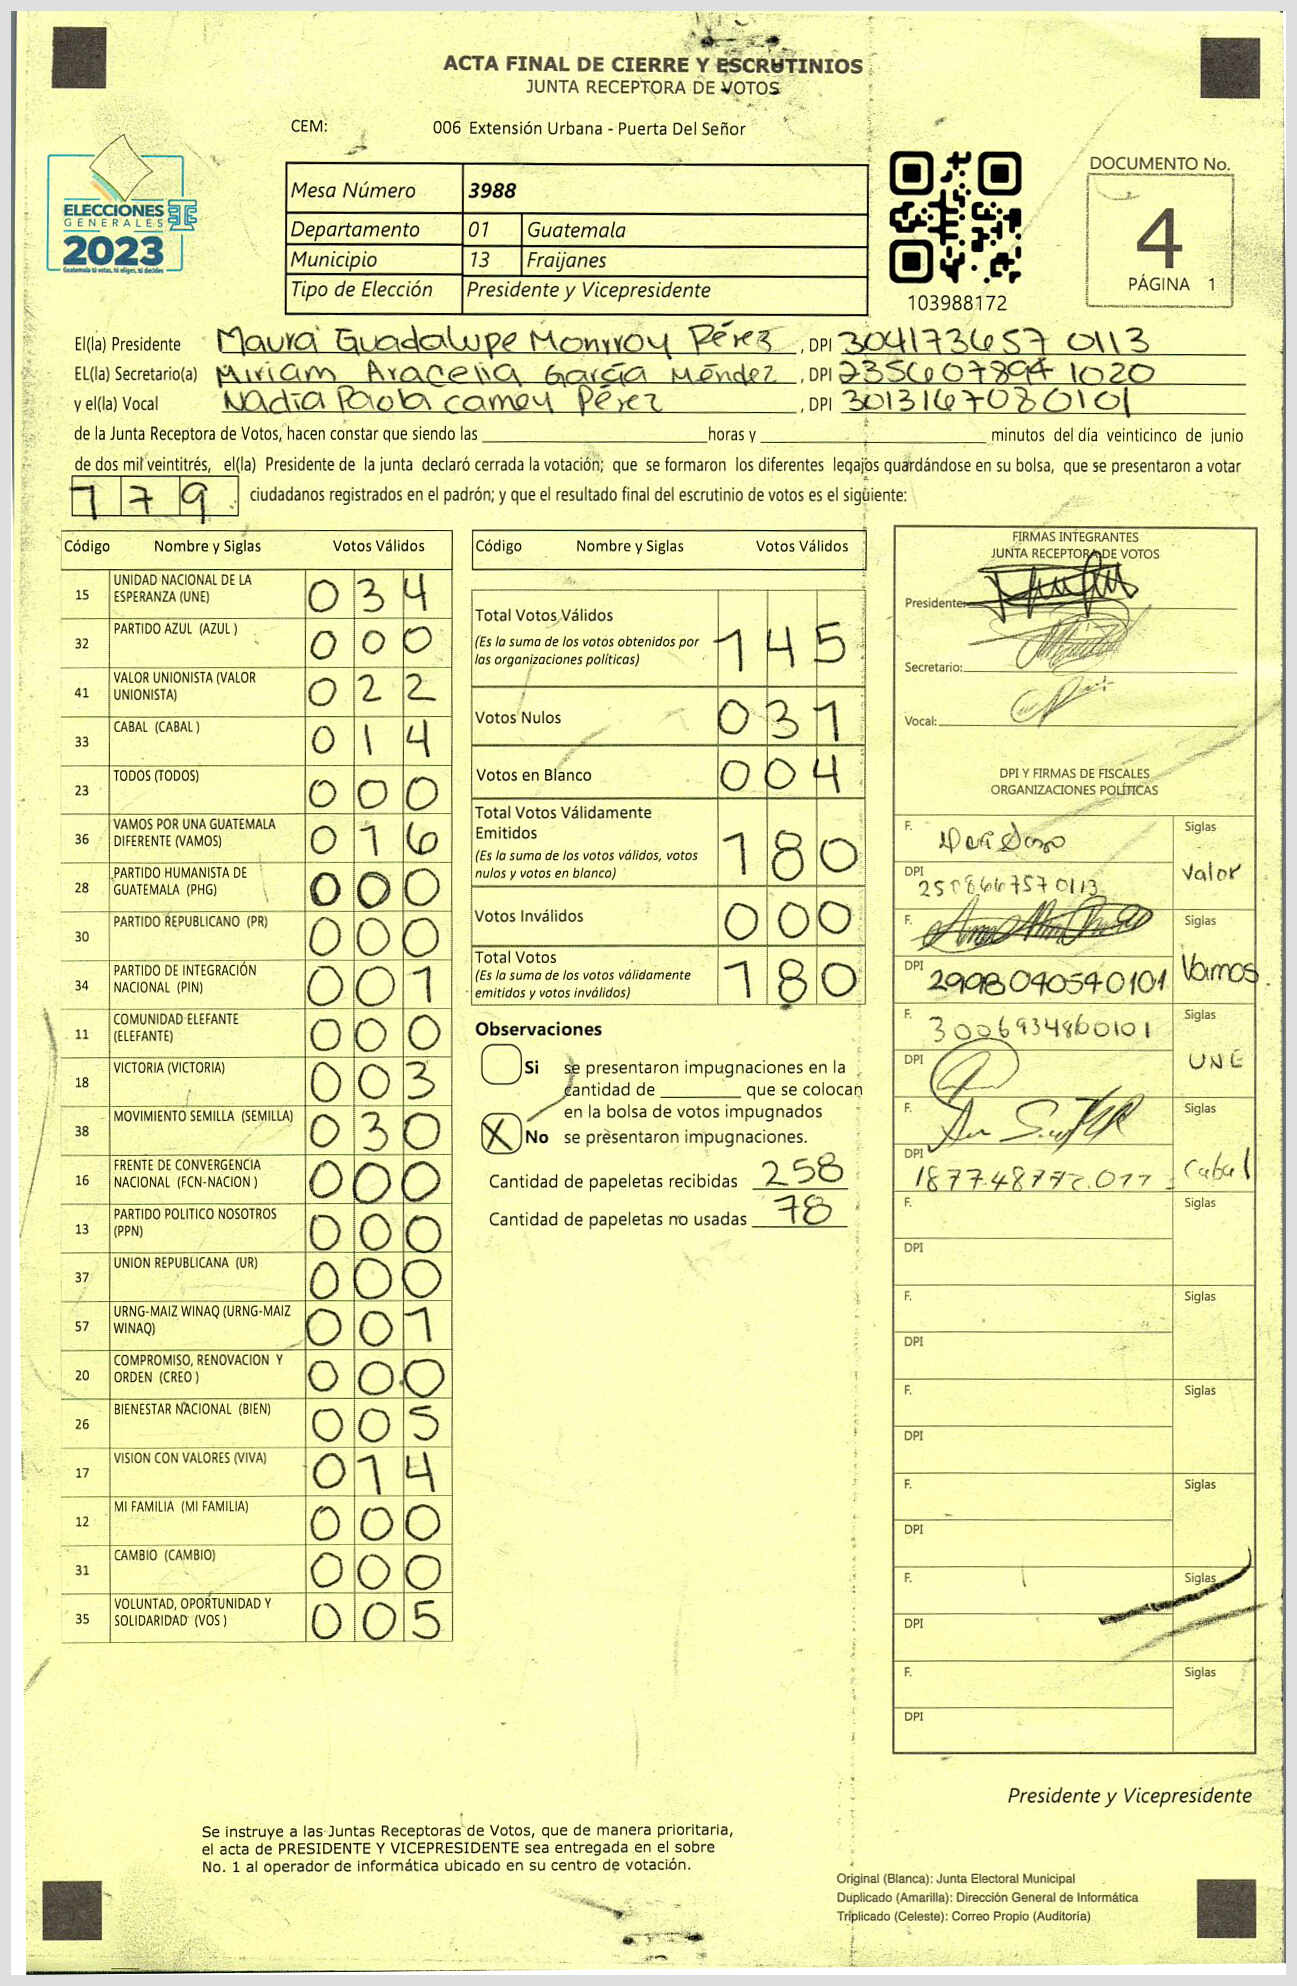 ACTA FINAL DE CIERRE Y ESCRUTINIOS
JUNTA RECEPTORA DE VOTOS
CEM: 006 Extensión Urbana - Puerta Del Señor
ELECCIONES
GENERALES
2023
Guatemala tú votas, tú eliges, tú decides
Mesa Número 3988
Departamento 01 Guatemala
Municipio 13 Fraijanes
Tipo de Elección Presidente y Vicepresidente
103988172
DOCUMENTO No.
4
PÁGINA 1
El(la) Presidente Maura Guadalupe Monrroy Pérez , DPI 304173657 0113
EL(la) Secretario(a) Miriam Aracelia García Méndez , DPI 235607894 1020
y el(la) Vocal Nadia Paola Camey Pérez , DPI 3013167080101
de la Junta Receptora de Votos, hacen constar que siendo las horas y minutos del día veinticinco de junio
de dos mil veintitrés, el(la) Presidente de la junta declaró cerrada la votación; que se formaron los diferentes legajos guardándose en su bolsa, que se presentaron a votar
179 ciudadanos registrados en el padrón; y que el resultado final del escrutinio de votos es el siguiente:
Código Nombre y Siglas Votos Válidos
15 UNIDAD NACIONAL DE LA ESPERANZA (UNE) 034
32 PARTIDO AZUL (AZUL ) 000
41 VALOR UNIONISTA (VALOR UNIONISTA) 022
33 CABAL (CABAL ) 014
23 TODOS (TODOS) 000
36 VAMOS POR UNA GUATEMALA DIFERENTE (VAMOS) 016
28 PARTIDO HUMANISTA DE GUATEMALA (PHG) 000
30 PARTIDO REPUBLICANO (PR) 000
34 PARTIDO DE INTEGRACIÓN NACIONAL (PIN) 001
11 COMUNIDAD ELEFANTE (ELEFANTE) 000
18 VICTORIA (VICTORIA) 003
38 MOVIMIENTO SEMILLA (SEMILLA) 030
16 FRENTE DE CONVERGENCIA NACIONAL (FCN-NACION ) 000
13 PARTIDO POLITICO NOSOTROS (PPN) 000
37 UNION REPUBLICANA (UR) 000
57 URNG-MAIZ WINAQ (URNG-MAIZ WINAQ) 001
20 COMPROMISO, RENOVACION Y ORDEN (CREO ) 000
26 BIENESTAR NACIONAL (BIEN) 005
17 VISION CON VALORES (VIVA) 014
12 MI FAMILIA (MI FAMILIA) 000
31 CAMBIO (CAMBIO) 000
35 VOLUNTAD, OPORTUNIDAD Y SOLIDARIDAD (VOS ) 005
Código Nombre y Siglas Votos Válidos
Total Votos Válidos 145
(Es la suma de los votos obtenidos por las organizaciones políticas)
Votos Nulos 031
Votos en Blanco 004
Total Votos Válidamente Emitidos 180
(Es la suma de los votos válidos, votos nulos y votos en blanco)
Votos Inválidos 000
Total Votos 180
(Es la suma de los votos válidamente emitidos y votos inválidos)
Observaciones
Si se presentaron impugnaciones en la
cantidad de que se colocan
en la bolsa de votos impugnados
X No se presentaron impugnaciones.
Cantidad de papeletas recibidas 258
Cantidad de papeletas no usadas 78
FIRMAS INTEGRANTES
JUNTA RECEPTORA DE VOTOS
Presidente:
Secretario:
Vocal:
DPI Y FIRMAS DE FISCALES
ORGANIZACIONES POLÍTICAS
F. Siglas
DPI Valor
F. Siglas
DPI 2998040540101 Vamos
F. 3006934860101 Siglas
DPI UNE
F. Siglas
DPI Cabal
F. Siglas
DPI
F. Siglas
DPI
F. Siglas
DPI
F. Siglas
DPI
F. Siglas
DPI
F. Siglas
DPI
Presidente y Vicepresidente
Se instruye a las Juntas Receptoras de Votos, que de manera prioritaria,
el acta de PRESIDENTE Y VICEPRESIDENTE sea entregada en el sobre
No. 1 al operador de informática ubicado en su centro de votación.
Original (Blanca): Junta Electoral Municipal
Duplicado (Amarilla): Dirección General de Informática
Triplicado (Celeste): Correo Propio (Auditoría)